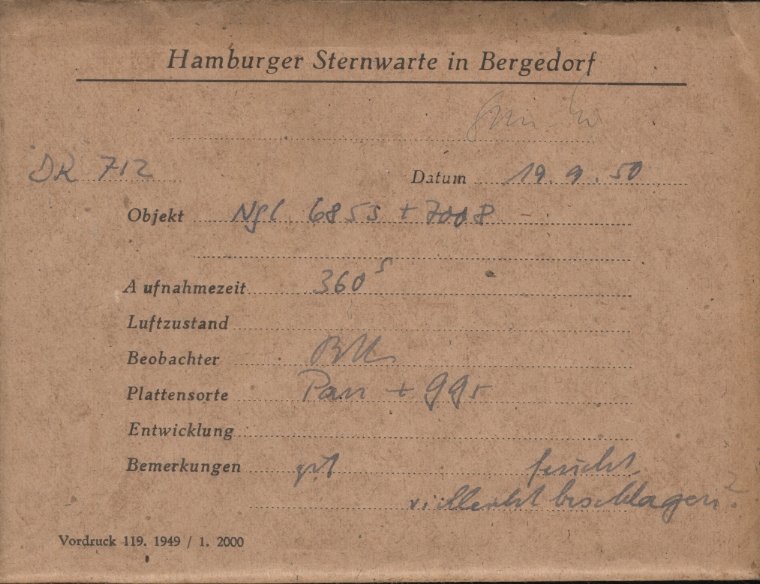 Hamburger Sternwarte in Bergedorf
DR 712
Datum 19.9.50
Objekt NGC 6853 + 7008
Aufnahmezeit 360s
Luftzustand
Beobachter
Plattensorte Pan + GG5
Entwicklung
Bemerkungen gut feucht
vielleicht beschlagen?
Vordruck 119. 1949 / 1. 2000